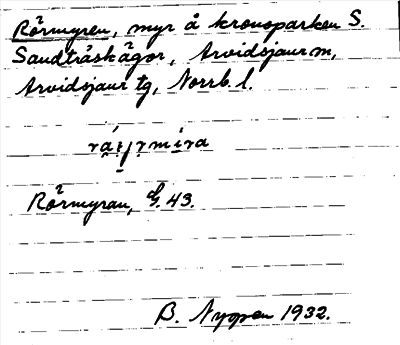 Rörmyren, myr å kronoparken S.
Sandträskågor, Arvidsjaur m,
Arvidsjaur tg, Norrb. l.
Rörmyran, G. 43.
B. Nygren 1932.